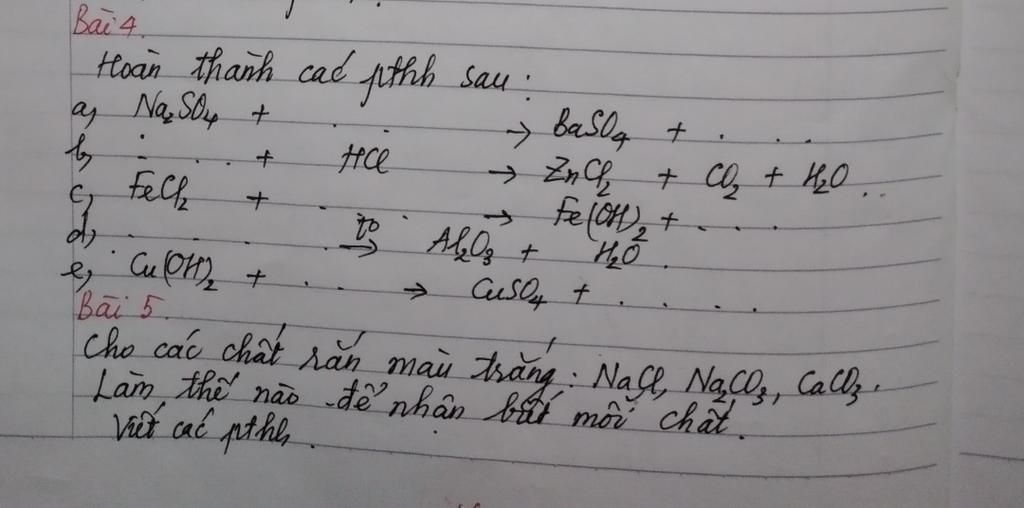 Bài 4.
Hoàn thành các pthh sau:
a, Na2SO4 + . . . → BaSO4 + . . .
b, . . . . + HCl → ZnCl2 + CO2 + H2O . .
c, FeCl2 + . . . → Fe(OH)2 + . . . .
d, . . . . . t0 → Al2O3 + H2O .
e, Cu(OH)2 + . . . → CuSO4 + . . . .
Bài 5.
Cho các chất rắn màu trắng: NaCl, Na2CO3, CaCO3.
Làm thế nào để nhận biết mỗi chất.
Viết các pthh.